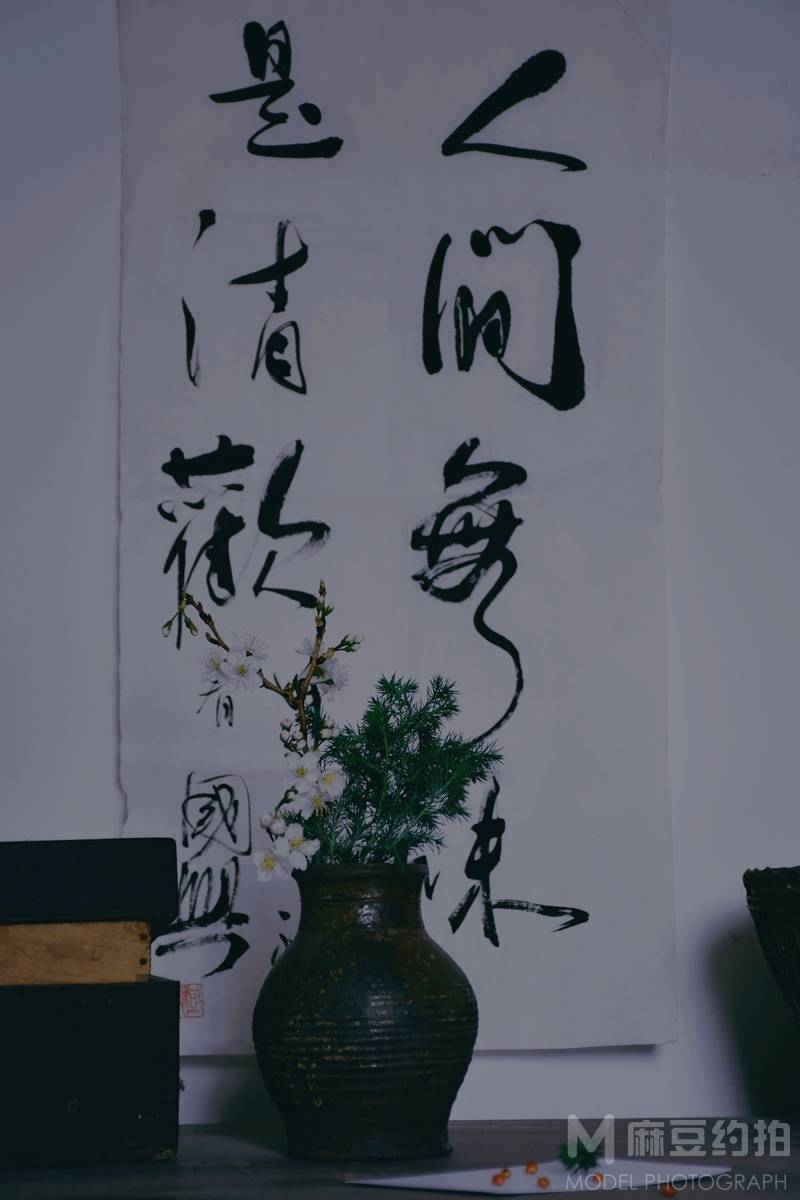 人間無味
是清歡
有
國興
M 麻豆约拍
MODEL PHOTOGRAPH